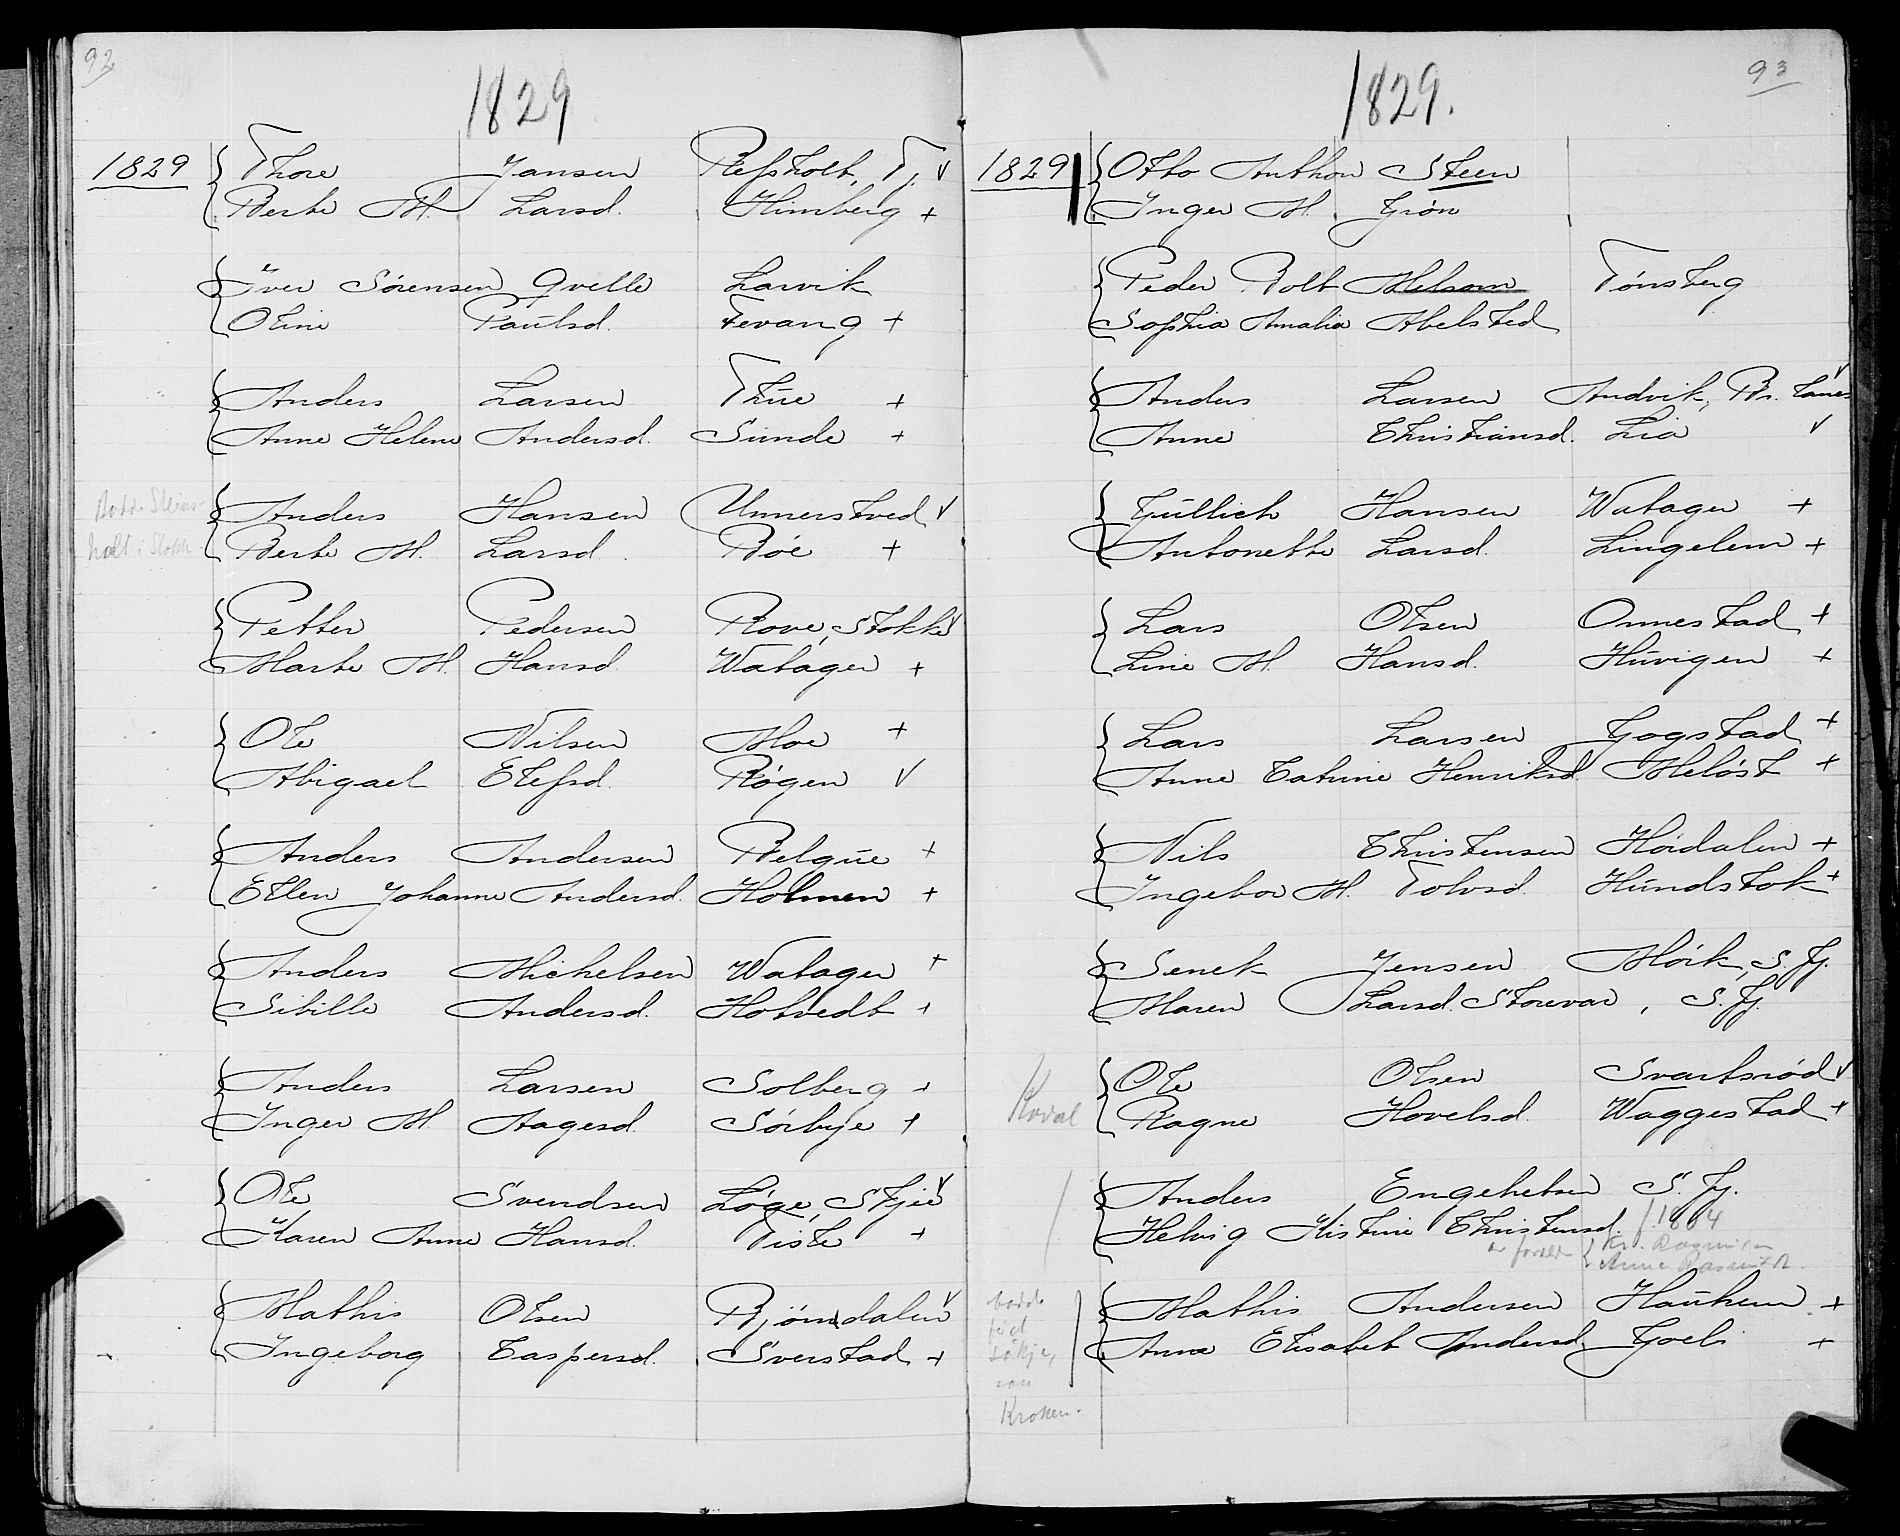 92
1829
1829 Thore Jansen Refsholt, Tj. v
Berte M. Larsd. Himberg +
Iver Sørensen Qvelle Larvik
Oline Paulsd. Fevang +
Anders Larsen Thüe +
Anne Helene Andersd. Sunde +
Anders Hansen Unnerstved v
Berte M. Larsd. Bøe +
Petter Pedersen Rove, Stokke v
Marte M. Hansd. Watager +
Ole Nilsen Moe +
Abigael Elefsd. Røgen v
Anders Andersen Belgüe +
Ellen Johanne Andersd. Holmen +
Anders Michelsen Watager +
Sibille Andersd. Hotvedt +
Anders Larsen Solberg +
Inger M. Aagesd. Sørbye +
Ole Svendsen Løge, Skjee v
Karen Anne Hansd. Tiste +
Mathis Olsen Bjørndalen v
Ingeborg Caspersd. Sverstad +
93
1829.
1829 Otto Anthon Steen
Inger M. Grøn
Peder Bolt Melsom Tønsberg
Sophia Amalia Abelsted
Anders Larsen Andvik, Br. Lanes v
Anne Christiansd. Lia v
Güllich Hansen Watager +
Antonette Larsd. Lingelem +
Lars Olsen Ormestad +
Line M. Hansd. Hüvigen +
Lars Larsen Gogstad +
Anne Catrine Henriksd. Meløst +
Nils Christensen Høidalen +
Ingebor M. Tolvsd. Hündstok +
Senek Jensen Mørk, S. Fj.
Maren Larsd. Storevar, S. Fj.
Ole Olsen Svartsrød v
Ragne Hovelsd. Waggestad +
Anders Engebetsen S. Fj.
Helvig Kistine Christensd. f. 1804
Mathis Andersen Hauhem +
bodde
Anne Elisabet Andersd. Joels +
Kroken.